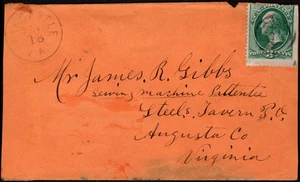 16
Mr James. R. Gibbs
Sewing machine Pattentee
Steels. Tavern P.O.
Augusta Co
Virginia